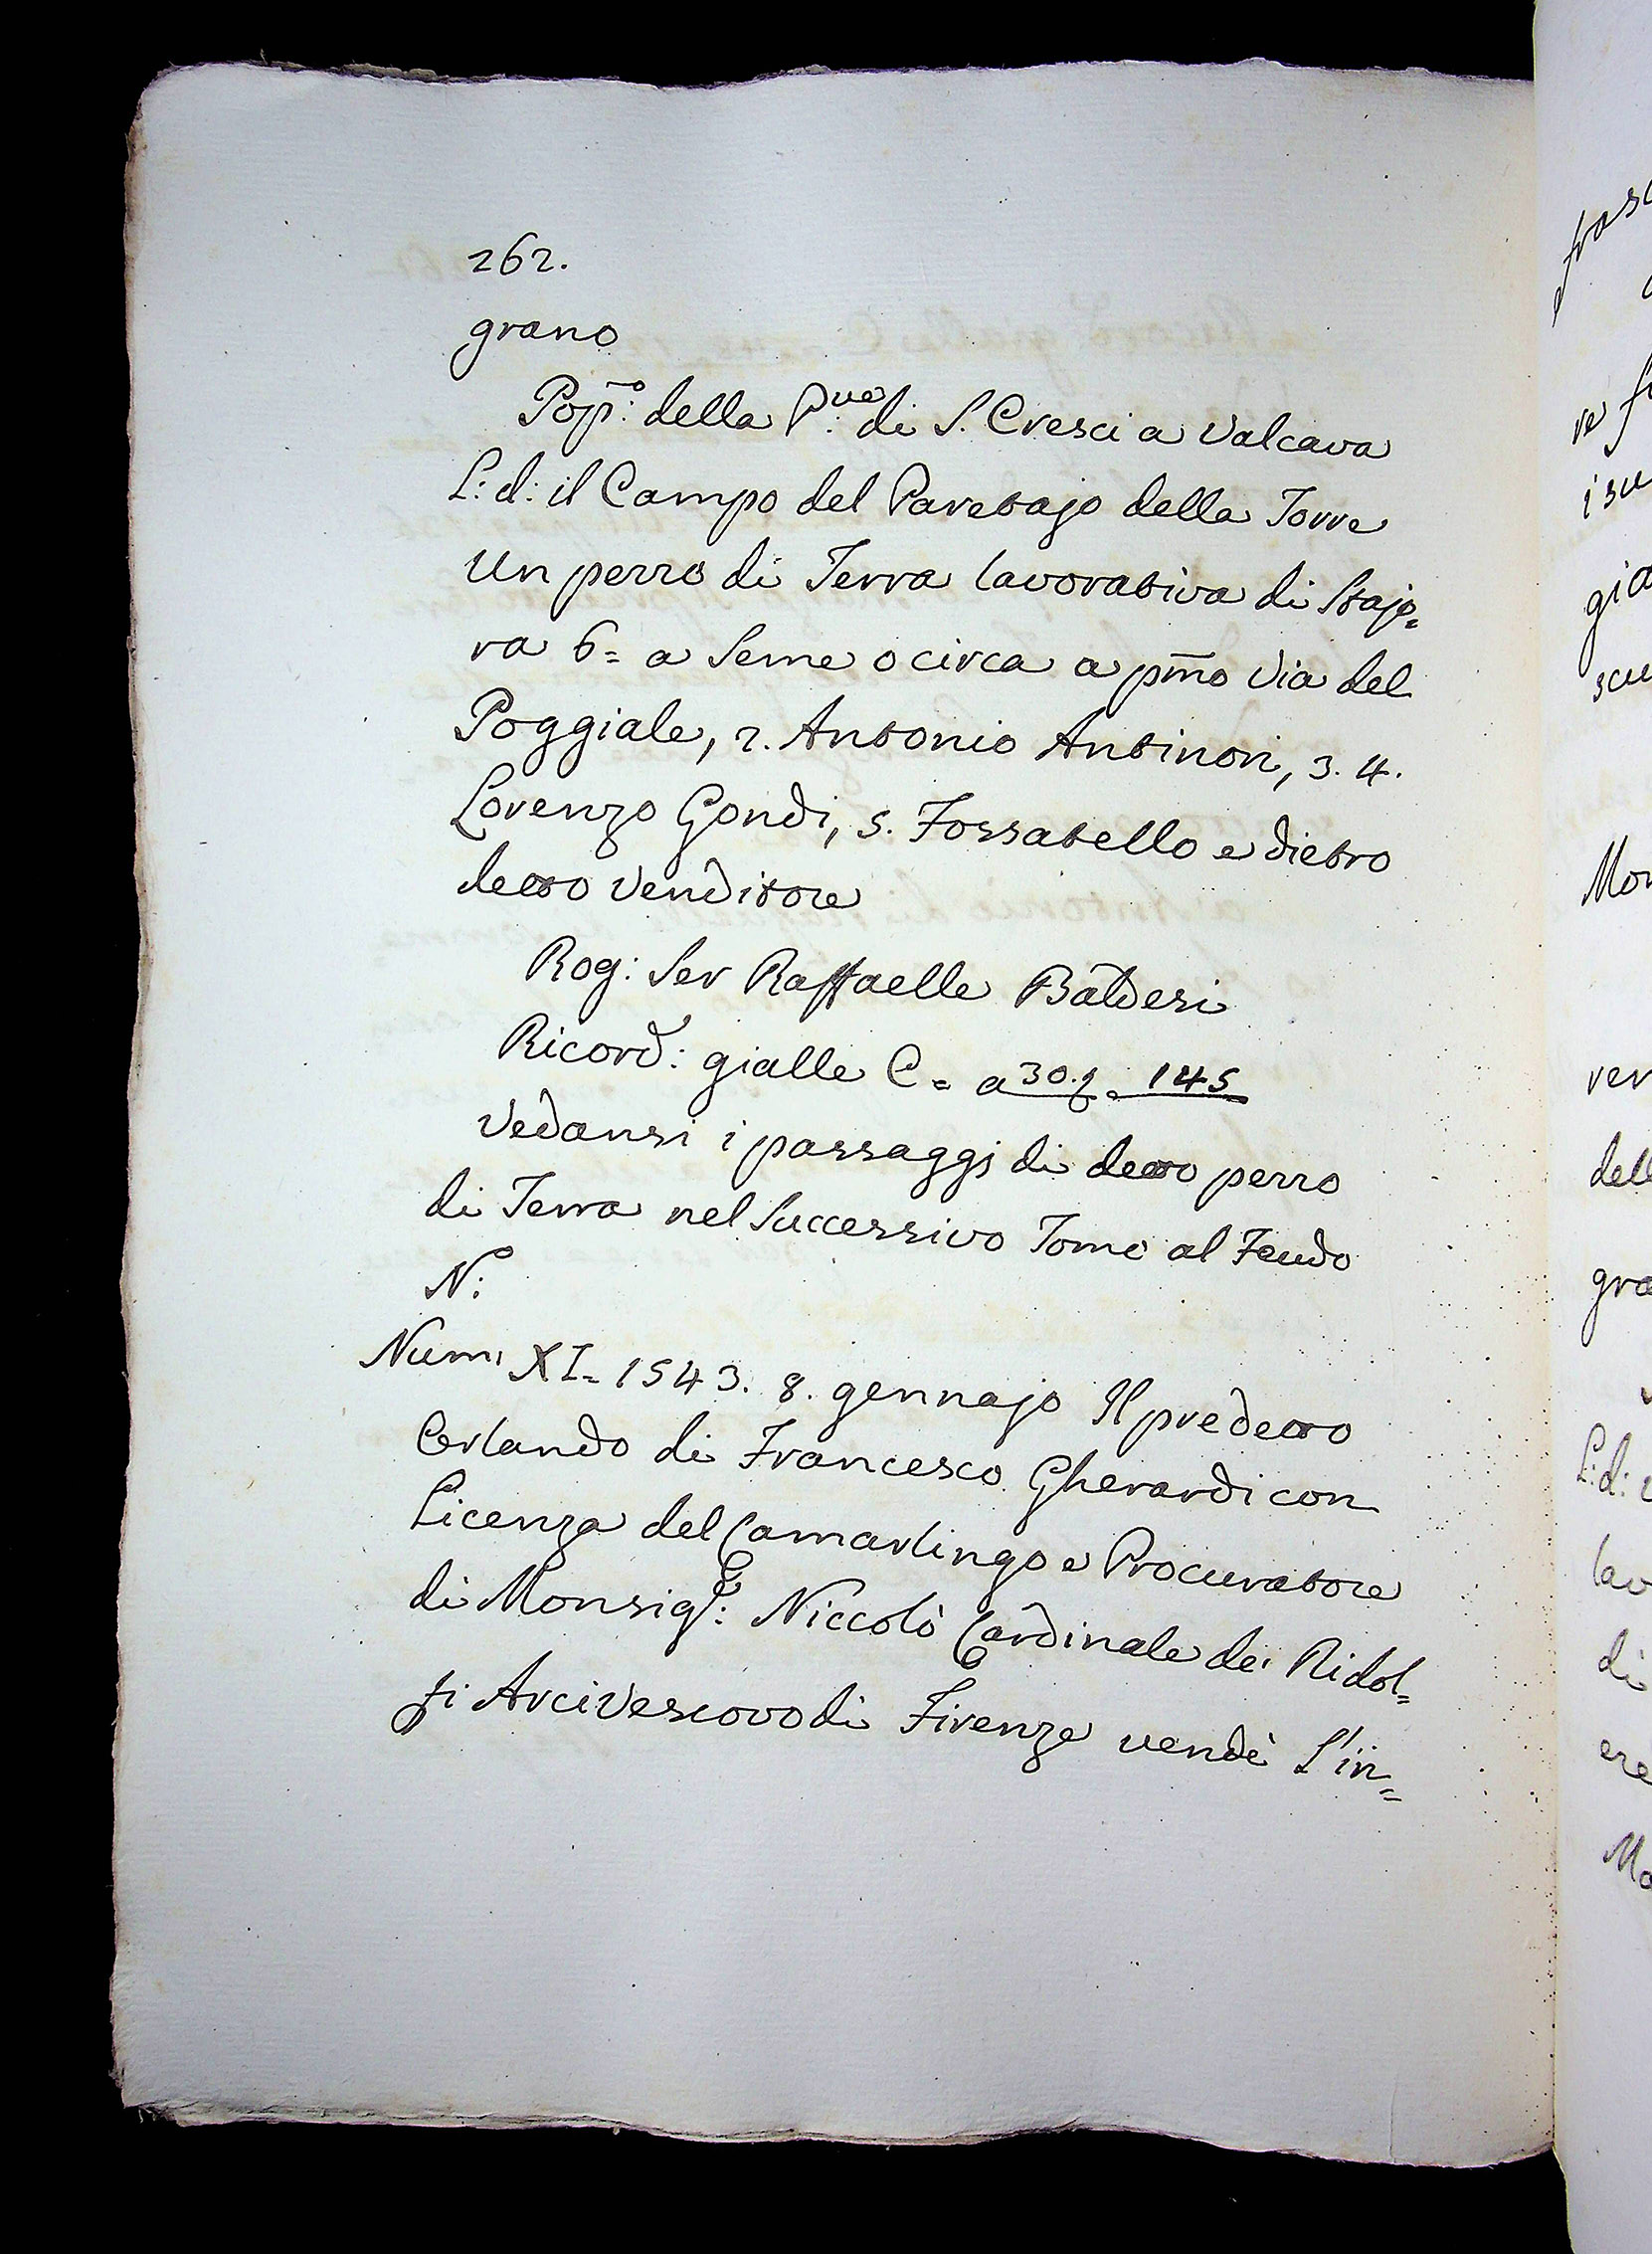 262.
grano
Pop:̃o della P:ue di S. Cresci a Valcava
L: d: il Campo del Paretajo della Torre
Un pezzo di Terra lavorativa di Stajo=
ra 6= a Seme o circa a pm̃o Via del
Poggiale, 2. Antonio Antinori, 3. 4.
Lorenzo Gondi, 5. Fossatello e dietro
detto Venditore
Rog: Ser Raffaelle Baldesi
Ricord: gialle C= a 30. e 145
Vedansi i passaggi di detto pezzo
di Terra nel Successivo Tomo al Feudo
N:
Num: XI= 1543. 8. gennajo Il predetto
Cerlando di Francesco Gherardi con
Licenza del Camarlingo e Procuratore
di Monsig:r Niccolò Cardinale dei Ridol=
fi Arcivescovo di Firenze vendè l'in=